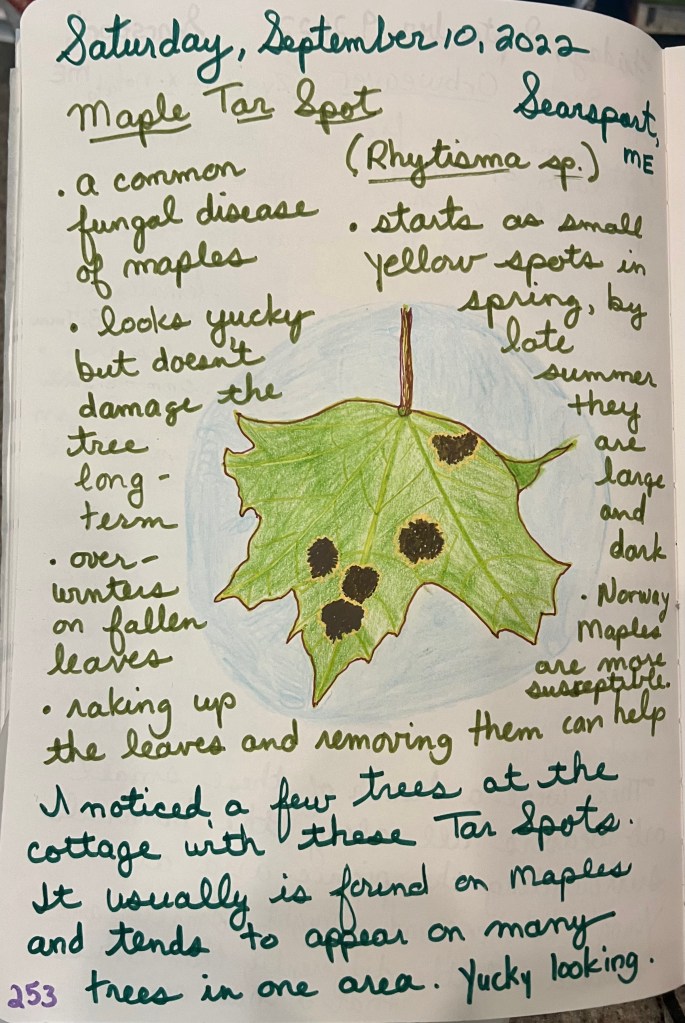 Saturday, September 10, 2022
Maple Tar Spot
Searsport,
ME
(Rhytisma sp.)
• a common
fungal disease
of maples
• looks yucky
but doesn't
damage the
tree
long-
term
• over-
winters
on fallen
leaves
• raking up
the leaves and removing them can help
• starts as small
yellow spots in
spring, by
late
summer
they
are
large
and
dark
• Norway
Maples
are more
susceptible.
I noticed a few trees at the
cottage with these Tar Spots.
It usually is found on Maples
and tends to appear on many
trees in one area. Yucky looking.
253